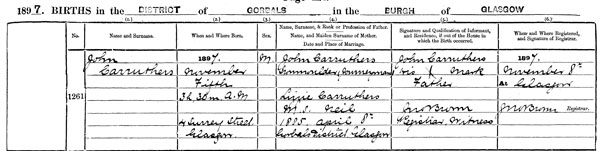 1897. BIRTHS in the DISTRICT of GORBALS in the BURGH of GLASGOW
(1.) (2.) (3.) (4.) (5.) (6.)
No. Name and Surname. When and Where Born. Sex. Name, Surname, & Rank or Profession of Father. Name, and Maiden Surname of Mother. Date and Place of Marriage. Signature and Qualification of Informant, and Residence, if out of the House in which the Birth occurred. When and Where Registered, and Signature of Registrar.
1261
John
Carruthers
1897.
November
Fifth
3h. 30m. A.M
4 Surrey Street
Glasgow
M
John Carruthers
Ironmoulder, Journeyman
Lizzie Carruthers
M.S. Neil
1885, April 8th
Gorbals District Glasgow
John Carruthers
His X Mark
Father
Registrar, Witness
1897.
November 8th
At Glasgow
Registrar.